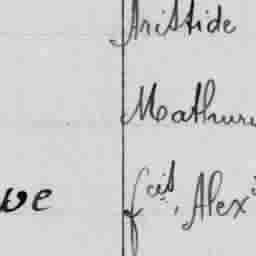 Aristide
Mathuri
ve fcis, Alex